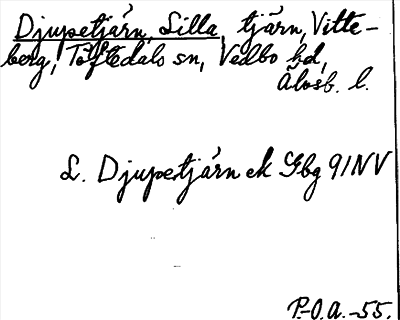 Djupetjärn, Lilla, tjärn, Vitte-
berg, Töftedals sn, Vedbo hd,
Älvsb. l.
L. Djupetjärn ek Gbg 91NV
P.-O.A.-55.